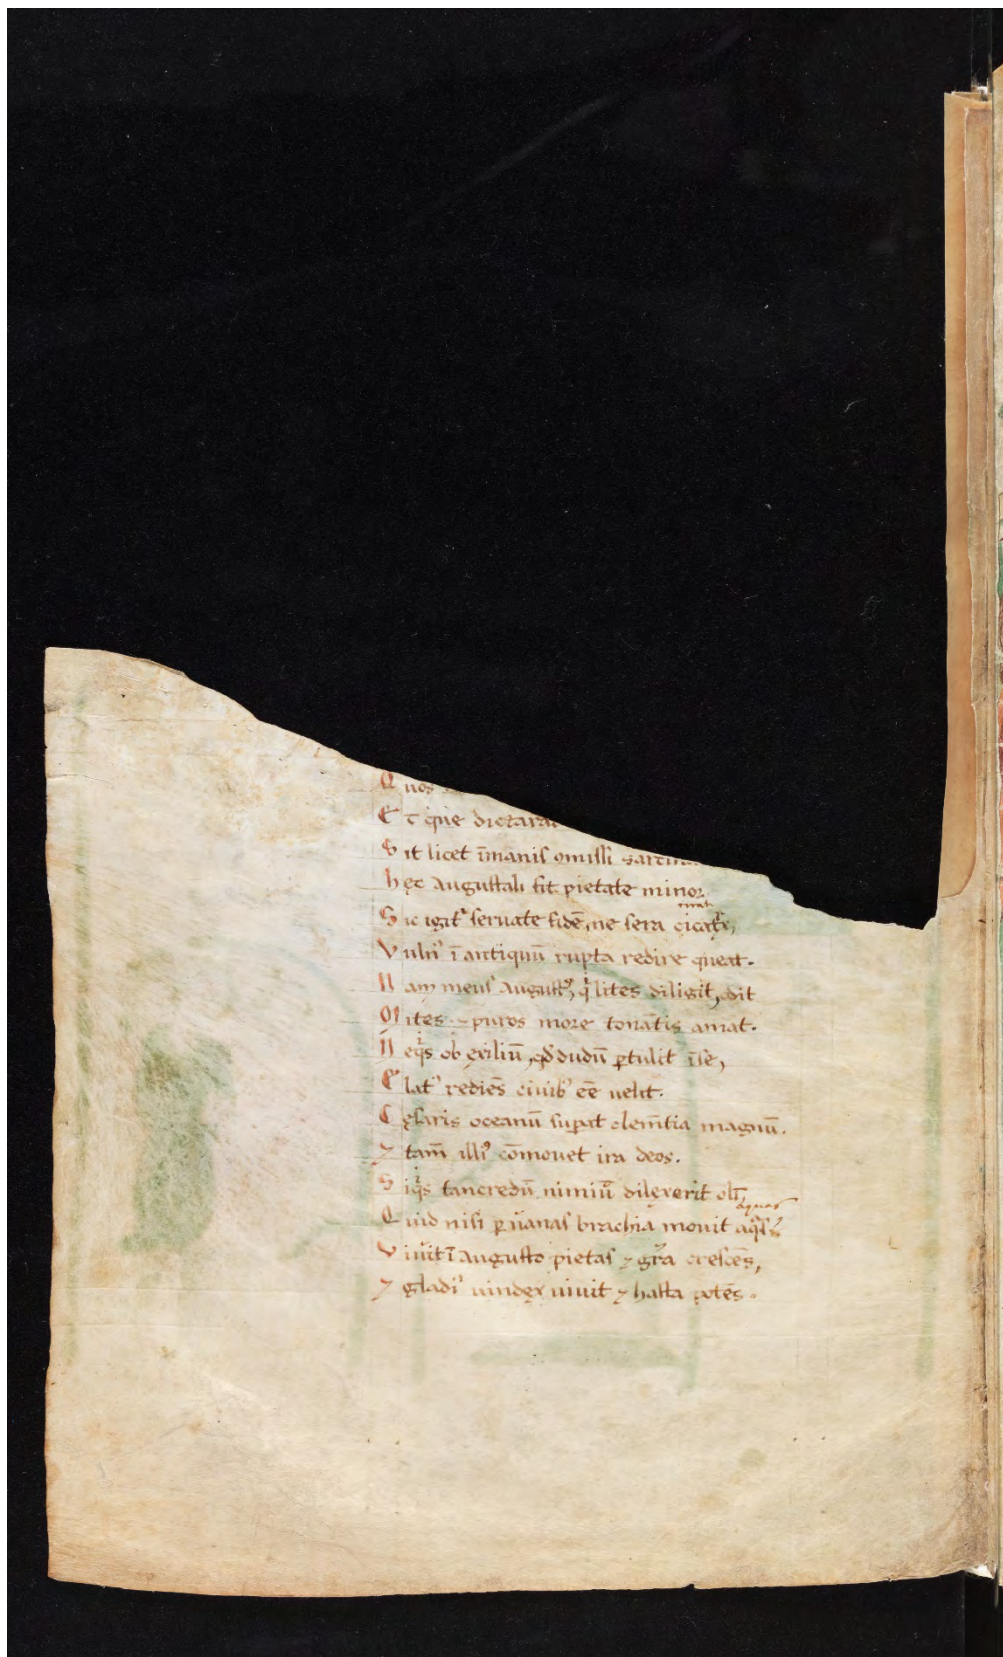 Quos
Et q̇ue dictarat
Sit licet īmanis omissi sarcina
hęc Augustali fit pietate minor
Sic igit᷑ seruate fidē, ne sera cicat᷑x,
Vuln᷒ ī antiquū rupta redire queat.
Nam meus august᷒, q̇ lites diligit, odit
Mites ⁊ puros more tonātis amat.
Neq̇s ob exiliū, qđ dudū ꝑtulit iſe,
Elat᷒ redies ciuib᷒ eē uelit.
Cęsaris oceanū suꝑat clem̄tia magnū.
⁊ tam̄ illi᷒ cōmouet ira deos.
Siq̇s tancredū nimiū dilexerit olī,
aquas
Quid nisi ꝑ uanas brachia mouit aq̇s?
Viuit ī augusto pietas ⁊ gr̄a crescēs,
⁊ gladi᷒ uindex uiuit ⁊ hasta potēs.